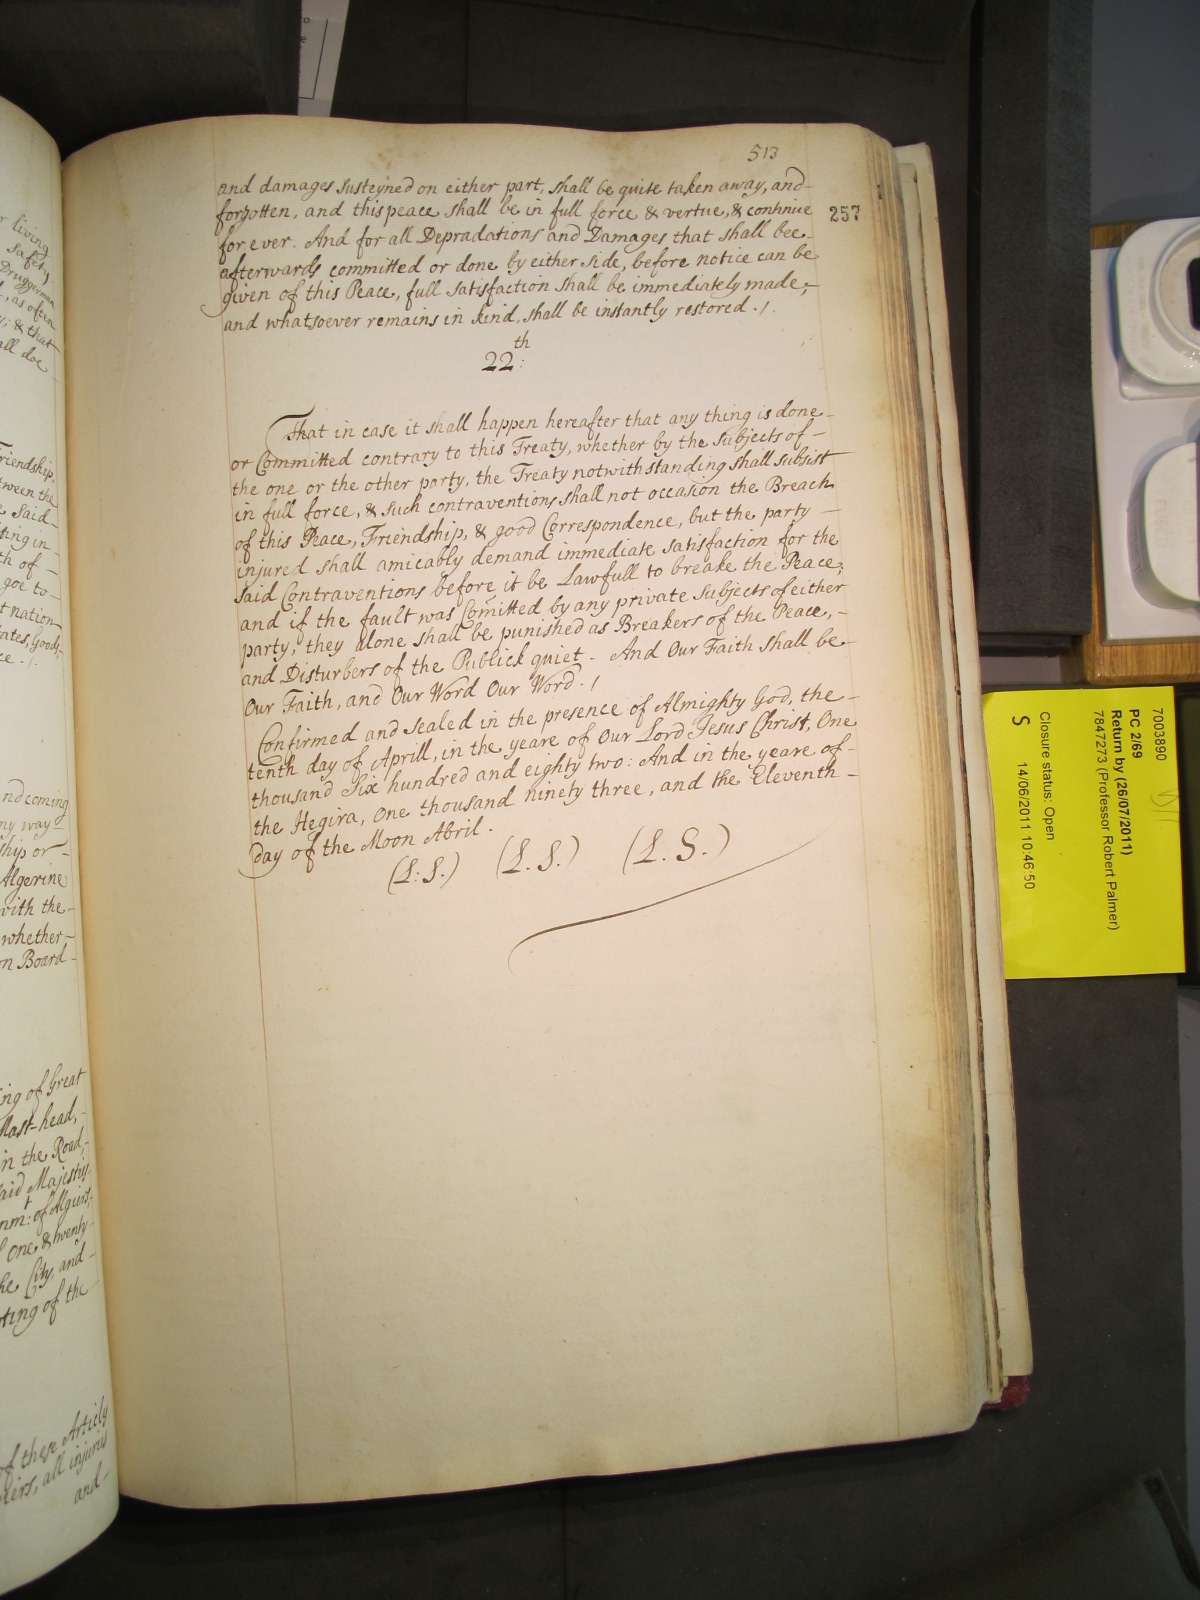 513
257
and damages susteyned on either part, shall be quite taken away, and-
forgotten, and this peace shall be in full force & vertue, & continue
for ever. And for all Depradations and Damages that shall bee-
afterwards committed or done by either side, before notice can be
given of this Peace, full satisfaction shall be immediately made,-
and whatsoever remains in kind, shall be instantly restored ./.
22th:
That in case it shall happen hereafter that any thing is done-
or Committed contrary to this Treaty, whether by the Subjects of-
the one or the other party, the Treaty notwithstanding shall subsist
in full force, & such contraventions shall not occasion the Breach
of this Peace, Friendship, & good Correspondence, but the party -
injured shall amicably demand immediate satisfaction for the
said Contraventions before it be Lawfull to breake the Peace;
and if the fault was Com̃itted by any private Subjects of either
party, they alone shall be punished as Breakers of the Peace, -
and Disturbers of the Publick quiet - And Our Faith shall be-
Our Faith, and Our Word Our Word ./
Confirmed and sealed in the presence of Almighty God, the -
tenth day of Aprill, in the yeare of Our Lord Jesus Christ, One
thousand Six hundred and eighty two: And in the yeare of-
the Hegira, One thousand ninety three, and the Eleventh -
day of the Moon Abril .
(L: S.) (L. S.) (L. S.)
living
safety
Druggerman
, as often
; & that
all doe
Friendship,
tween the
e said-
ting in-
th of -
goe to-
t nation
ates, Goods,
ce ./.
nd coming
ny way
ship or-
Algerine
with the-
whether,-
on Board-
ing of Great
Mast-head,-
in the Road,-
said Majestys
nmt: of Algiers,
One & twenty-
he City, and-
ting of the-
of these Articles
iers, all injuries
and-
7003890
PC 2/69
Return by (26/07/2011)
7847273 (Professor Robert Palmer)
Closure status: Open
S 14/06/2011 10:46:50